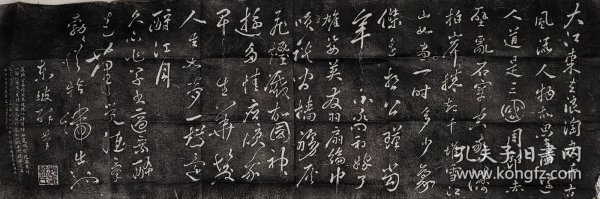 大江東去浪淘盡千古
風流人物故壘西邊
人道是三國周郎赤
壁亂石穿空驚濤
拍岸捲起千堆雪江
山如畫一時多少豪
傑遙想公瑾當
年小喬初嫁了
雄姿英發羽扇綸巾
談笑間檣艣灰
飛煙滅故國神
遊多情應笑我
早生華髮
人生如夢一樽還
酹江月
久不作草書適乘醉
走筆覺酒氣
勃勃似指端出也
東坡醉筆
孔夫子旧书网
www.kongfz.com